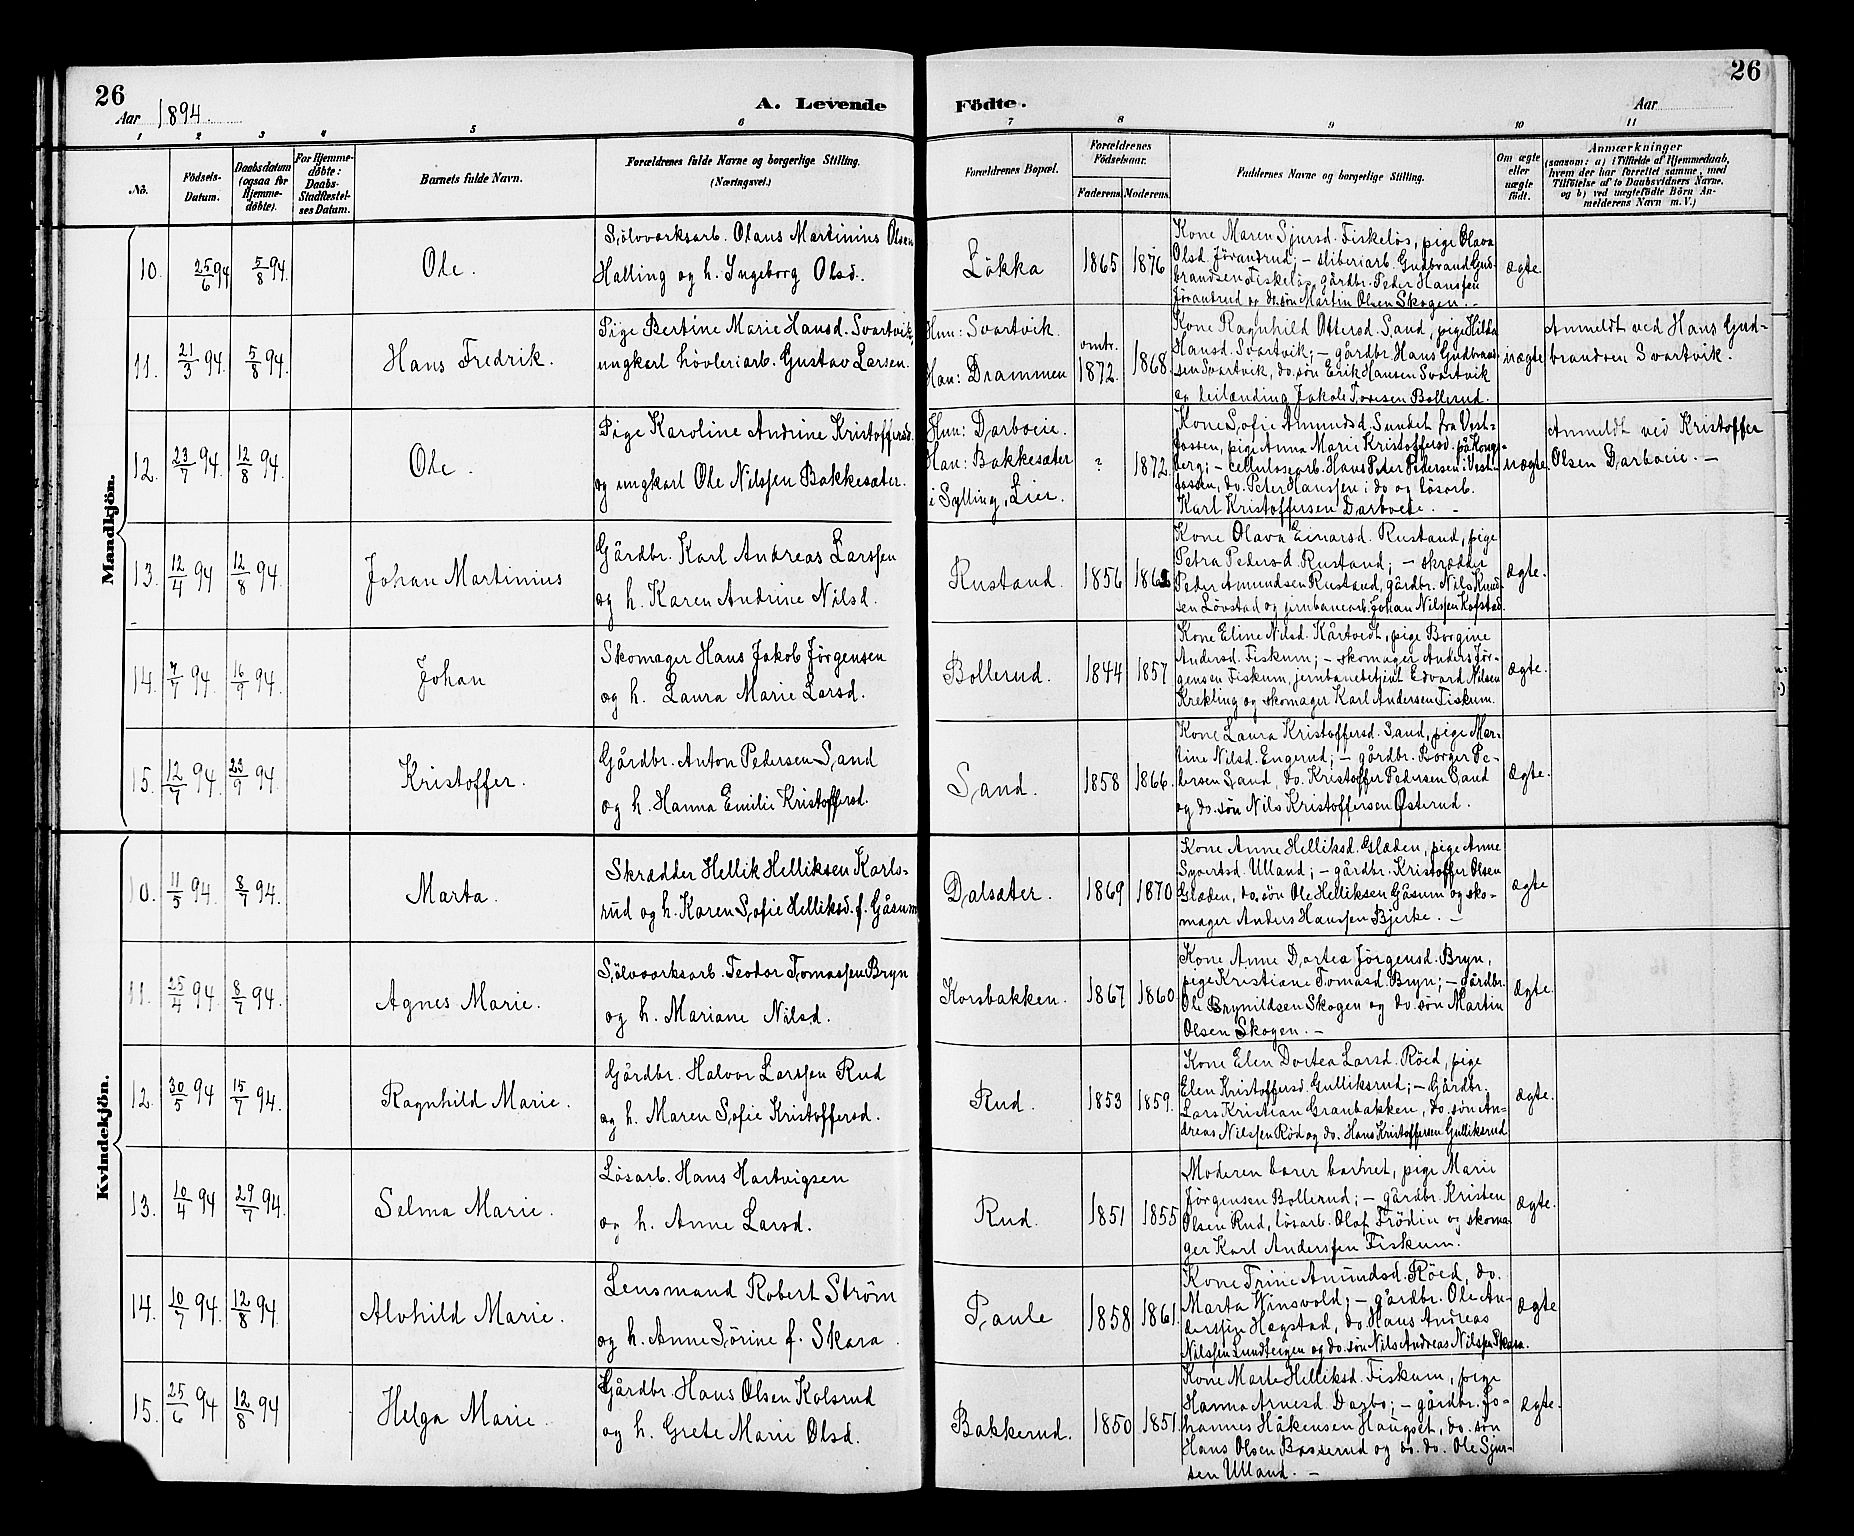 26
Aar 1894.
A. Levende Födte.
Aar
26
1 2 3 4 5 6 7 8 9 10 11
No.
Födsels-Datum.
Daabsdatum (ogsaa for Hjemme-döbte).
For Hjemme-döbte: Daabs-Stadfæstel-ses Datum.
Barnets fulde Navn.
Forældrenes fulde Navne og borgerlige Stilling. (Næringsvei.)
Forældrenes Bopæl.
Forældrenes Födselsaar.
Faderens
Moderens
Faddernes Navne og borgerlige Stilling.
Om ægte eller uægte födt.
Anmærkninger
(saasom: a) i Tilfælde af Hjemmedaab,
hvem der har forrettet samme, med
Tilföielse af to Daabsvidners Navne,
og b) ved uægtefödte Börn An-
melderens Navn m. V.)
Mandkjön.
10. 25/6 94 5/8 94. Ole.
Sölvværksarb. Olaus Martinius Olsen
Halling og h. Ingeborg Olsd.
Lökka 1865 1876
Kone Maren Sjursd. Fiskelös, pige Olava
Olsd. Jörandrud; – sliberiarb. Gudbrand Gud-
brandsen Fiskelös, gårdbr. Peder Hanssen
Jörandrud og do. søn Martin Olsen Skogen. –
ægte.
11. 21/3 94. 5/8 94. Hans Fredrik.
Pige Bertine Marie Hansd. Svartvik,
ungkarl hövleriarb. Gustav Larsen.
Hun: Svartvik.
Han: Drammen
omtr. 1872. 1868.
Kone Ragnhild Ottersd. Sand, pige Hilda
Hansd. Svartvik; – gårdbr. Hans Gudbrand-
sen Svartvik, do. søn Erik Hansen Svartvik
og leilænding Jakob Toresen Bollerud.
uægte
Anmeldt ved Hans Gud-
brandsen Svartvik.
12. 23/7 94. 12/8 94. Ole.
Pige Karoline Andrine Kristoffersd.
og ungkarl Ole Nilssen Bakkesæter.
Hun: Darboeie.
Han: Bakkesæter
i Sylling, Lier.
? 1872.
Kone Sofie Amundsd. Sundet fra Vest-
fossen, pige Anna Marie Kristoffersd. på Kongs-
berg; – cellulosearb. Hans Peter Pedersen i Vest-
fossen, do. Peter Hanssen i do og lösarb.
Karl Kristoffersen Darboeie. –
uægte.
Anmeldt ved Kristoffer
Olsen Darboeie. –
13. 12/4 94 12/8 94. Johan Martinius
Gårdbr. Karl Andreas Larssen
og h. Karen Andrine Nilsd.
Rustand. 1856
Kone Olava Einarsd. Rustand, pige
Petra Pedersd. Rustand; – skrædder
Peder Amundsen Rustand, gårdbr. Nils Knud-
sen Lövstad og jernbanearb. Johan Nilssen Kofstad.
Ægte.
14. 7/7 94. 16/9 94. Johan
Skomager Hans Jakob Jörgensen
og h. Laura Marie Larsd.
Bollerud. 1844 1857
Kone Eline Nilsd. Kårtvedt, pige Borgine
Andersd. Fiskum; – skomager Anders Jör-
gensen Fiskum, jernbanebetjent Edvard Nilsen
Krekling og skomager Karl Andersen Fiskum.
Ægte.
15. 12/7 94 23/9 94. Kristoffer.
Gårdbr. Anton Pedersen Sand
og h. Hanna Emilie Kristoffersd.
Sand. 1858 1866.
Kone Laura Kristoffersd. Sand, pige Mar-
tine Nilsd. Engerud; – gårdbr. Borger Pe-
dersen Sand, do. Kristoffer Pedersen Sand
og do. søn Nils Kristoffersen Østerud.
Ægte.
Kvindekjön.
10. 11/5 94. 8/7 94. Marta.
Skrædder Hellik Helliksen Karls-
rud og h. Karen Sofie Helliksd. f. Gåsum
Dalsæter. 1869 1870
Kone Anne Helliksd. Glæden, pige Anne
Syvertsd. Ulland; – gårdbr. Kristoffer Olsen
Glæden, do. søn Ole Helliksen Gåsum og sko-
mager Anders Hanssen Bjerke. –
ægte
11. 25/4 94. 8/7 94. Agnes Marie.
Sölvværksarb. Teodor Tomassen Bryn
og h. Mariane Nilsd.
Korsbakken. 1867 1860
Kone Anne Dortea Jörgensd. Bryn,
pige Kristiane Tomasd. Bryn; – gårdbr.
Ole Brynildsen Skogen og do. søn Martin
Olsen Skogen. –
Ægte.
12. 30/5 94 15/7 94. Ragnhild Marie.
Gårdbr. Halvor Larssen Rud
og h. Maren Sofie Kristoffersd.
Rud. 1853 1859.
Kone Elen Dortea Larsd. Röed, pige
Elen Kristoffersd. Gulliksrud; – Gårdbr.
Lars Kristian Granbakken, do. søn An-
dreas Nilssen Röd og do. Hans Kristoffersen Gulliksrud
ægte.
13. 10/4 94 29/7 94. Selma Marie.
Lösarb. Hans Hartvigsen
og h. Anne Larsd.
Rud. 1851 1855
Moderen bærer barnet, pige Marie
Jörgensen Bollerud; – gårdbr. Kristen
Olsen Rud, lösarb. Olaf Frödin og skoma-
ger Karl Anderssen Fiskum.
ægte.
14. 10/7 94. 12/8 94. Alvhild Marie.
Lensmand Robert Ström
og h. Anne Sörine f. Skara.
Paule 1858 1861.
Kone Trine Amundsd. Röed, do.
Marta Winsvold; – gårdbr. Ole An-
derssen Hægstad, do. Hans Andreas
Nilssen Lundteigen og do. søn Nils Andreas Nilssen Skara.
ægte
15. 25/6 94 12/8 94 Helga Marie.
Gårdbr. Hans Olsen Kolsrud
og h. Grete Marie Olsd.
Bakkerud. 1850 1851.
Kone Marte Helliksd. Fiskum, pige
Hanna Arnesd. Darbo; – gårdbr. Jo-
hannes Håkensen Haugset, do. søn
Hans Olsen Basserud og do. do. Ole Sjur-
sen Ulland. –
Ægte.